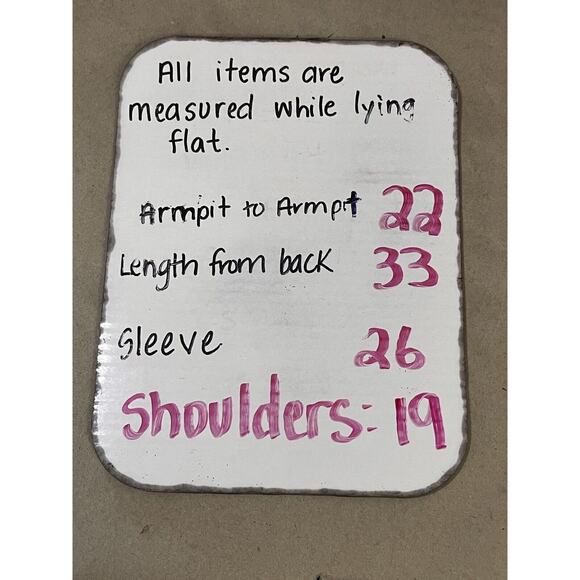 All items are
measured while lying
flat.
Armpit to Armpit 22
Length from back 33
Sleeve 26
Shoulders: 19